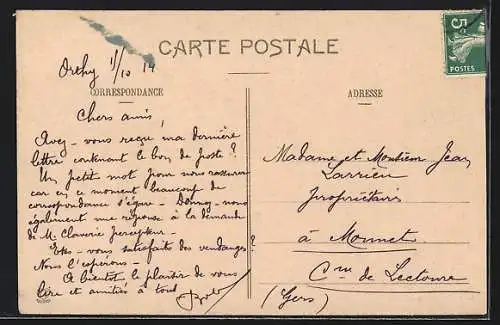 CARTE POSTALE
5c
POSTES
Orthy 1/10 14
CORRESPONDANCE
ADRESSE
Chers amis,
Avez-vous reçu ma dernière
lettre contenant le bon de poste ?
Un petit mot pour nous rassurer
car en ce moment beaucoup de
correspondance s'égare - Donnez-nous
également une réponse à la demande
de M. Claverie percepteur -
Etes-vous satisfaits des vendanges ?
Nous l'espérons -
A bientôt le plaisir de vous
lire et amitiés à tous
Madame et Monsieur Jean
Larrieu
propriétaire
à
Cne de Lectoure
(Gers)